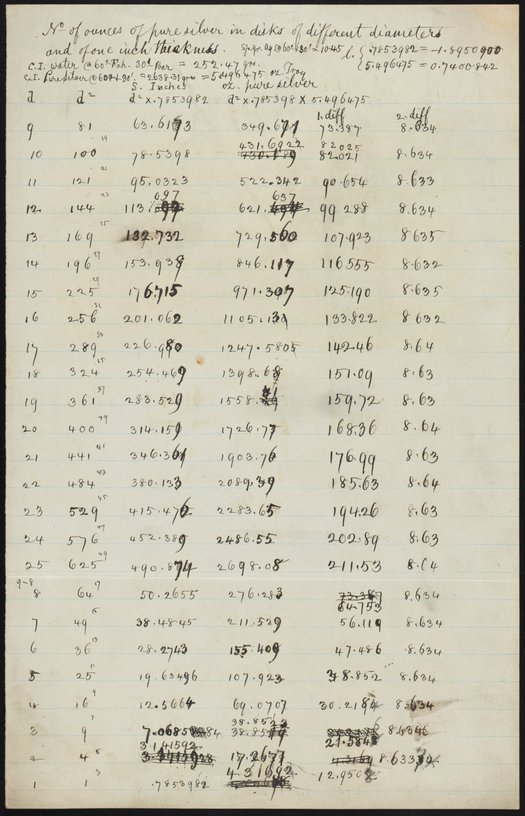 No of ounces of pure silver in disks of different diameters
and of one inch thickness. Sp. gr. Ag @ 60° & 30" = 10.45 l. { .7853982 = -1.8950900
C.I. water @ 60° Fah. 30" Bar = 252.47 grs. { 5.496475 = 0.7400842
C.I. Pure silver @ 60° & 30" = 2638.31 grs = 5.496475 oz. Troy
S. Inches oz. pure silver
d d² d² x .7853982 d² x .785398 x 5.496475
1. diff 2. diff
9 81 63.6173 349.671 73.387 8.634
19 431.6922 82025
10 100 78.5398 82.021 8.634
21
11 121 95.0323 522.342 90.654 8.633
23 697 637
12 144 113. 621. 99 288 8.634
25
13 169 132.732 729.560 107.923 8635
27
14 196 153.938 846.117 116555 8.632
29
15 225 176.715 971.307 125.190 8.635
31
16 256 201.062 1105.139 133.822 8 632
33
17 289 226.980 1247.5805 142.46 8.64
35
18 324 254.469 1398.68 151.09 8.63
37 31
19 361 283.529 1558. 159.72 8.63
39
20 400 314.159 1726.77 168.36 8.64
41
21 441 346.361 1903.76 176.99 8.63
43
22 484 380.133 2089.39 185.63 8.64
45
23 529 415.476 2283.65 194.26 8.63
47
24 576 452.389 2486.55 202.89 8.63
49
25 625 490.874 2698.08 211.53 8.64
9-8 17
8 64 50.2655 276.283 8.634
64.753
15
7 49 38.4845 211.529 56.119 8.634
13
6 36 28.2743 155.409 47.486 8.634
11
5 25 19.63496 107.923 38.852 8.634
9
4 16 12.5664 69.0707 30.2184 8.634
7 38.8523
3 9 7.0685 8.6346
21.584
3.141593
5
2 4 17.2677 8.633
4.31692 12.950
3
1 1 .7853982